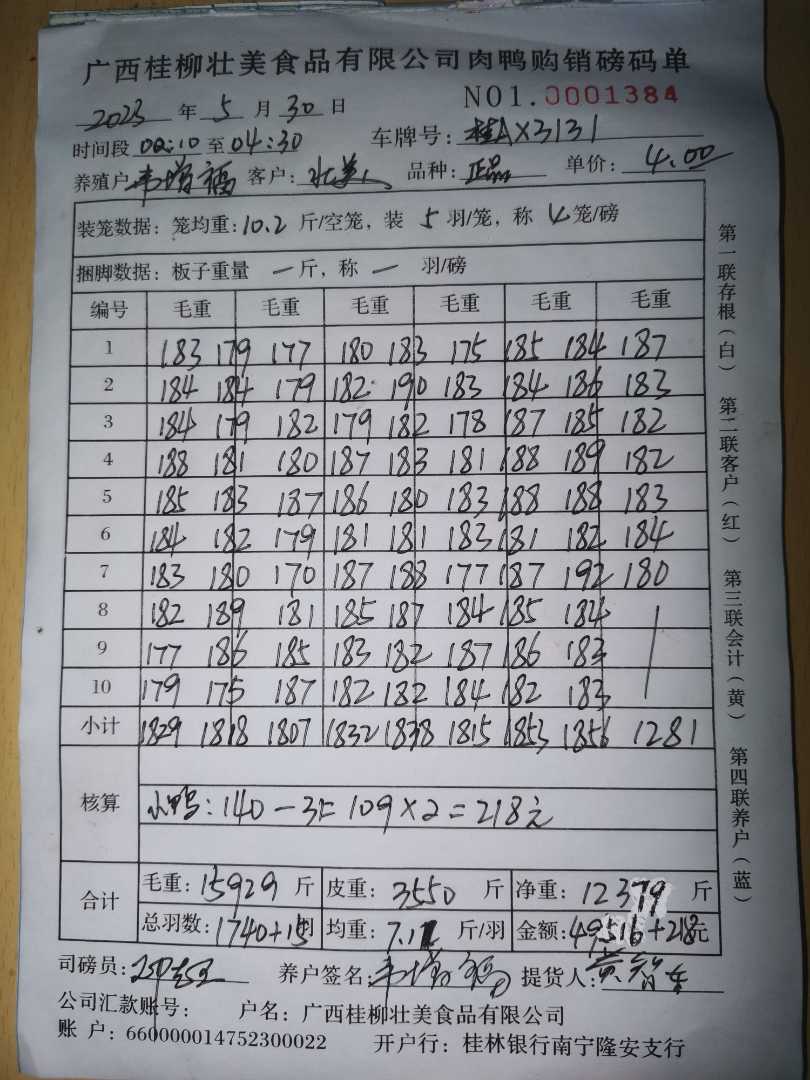 广西桂柳壮美食品有限公司肉鸭购销磅码单
2023 年 5 月 30 日 NO1.0001384
时间段 00:10 至 04:30 车牌号: 桂AX3131
养殖户 韦增福 客户: 壮美 品种: 正品 单价: 4.00
装笼数据: 笼均重: 10.2 斤/空笼, 装 5 羽/笼, 称 4 笼/磅
捆脚数据: 板子重量 一 斤, 称 一 羽/磅
编号 毛重 毛重 毛重 毛重 毛重 毛重
1 183 179 177 180 183 175 185 184 187
2 184 184 179 182 190 183 184 186 183
3 184 179 182 179 182 178 187 185 182
4 188 181 180 187 183 181 188 189 182
5 185 183 187 186 180 183 188 188 183
6 184 182 179 181 181 183 181 182 184
7 183 180 170 187 188 177 187 192 180
8 182 189 181 185 187 184 185 184
9 177 186 185 183 182 187 186 183
10 179 175 187 182 182 184 182 183
小计 1829 1818 1807 1832 1838 1815 1853 1856 1281
核算
小鸭: 140 - 31= 109 × 2 = 218元
合计 毛重: 15929 斤 皮重: 3550 斤 净重: 12379 斤
总羽数: 1740+15 羽 均重: 7.11 斤/羽 金额: 49516+218元
司磅员: 养户签名: 韦增福 提货人: 黄智
公司汇款账号: 户名: 广西桂柳壮美食品有限公司
账 户: 660000014752300022 开户行: 桂林银行南宁隆安支行
第一联存根(白) 第二联客户(红) 第三联会计(黄) 第四联养户(蓝)